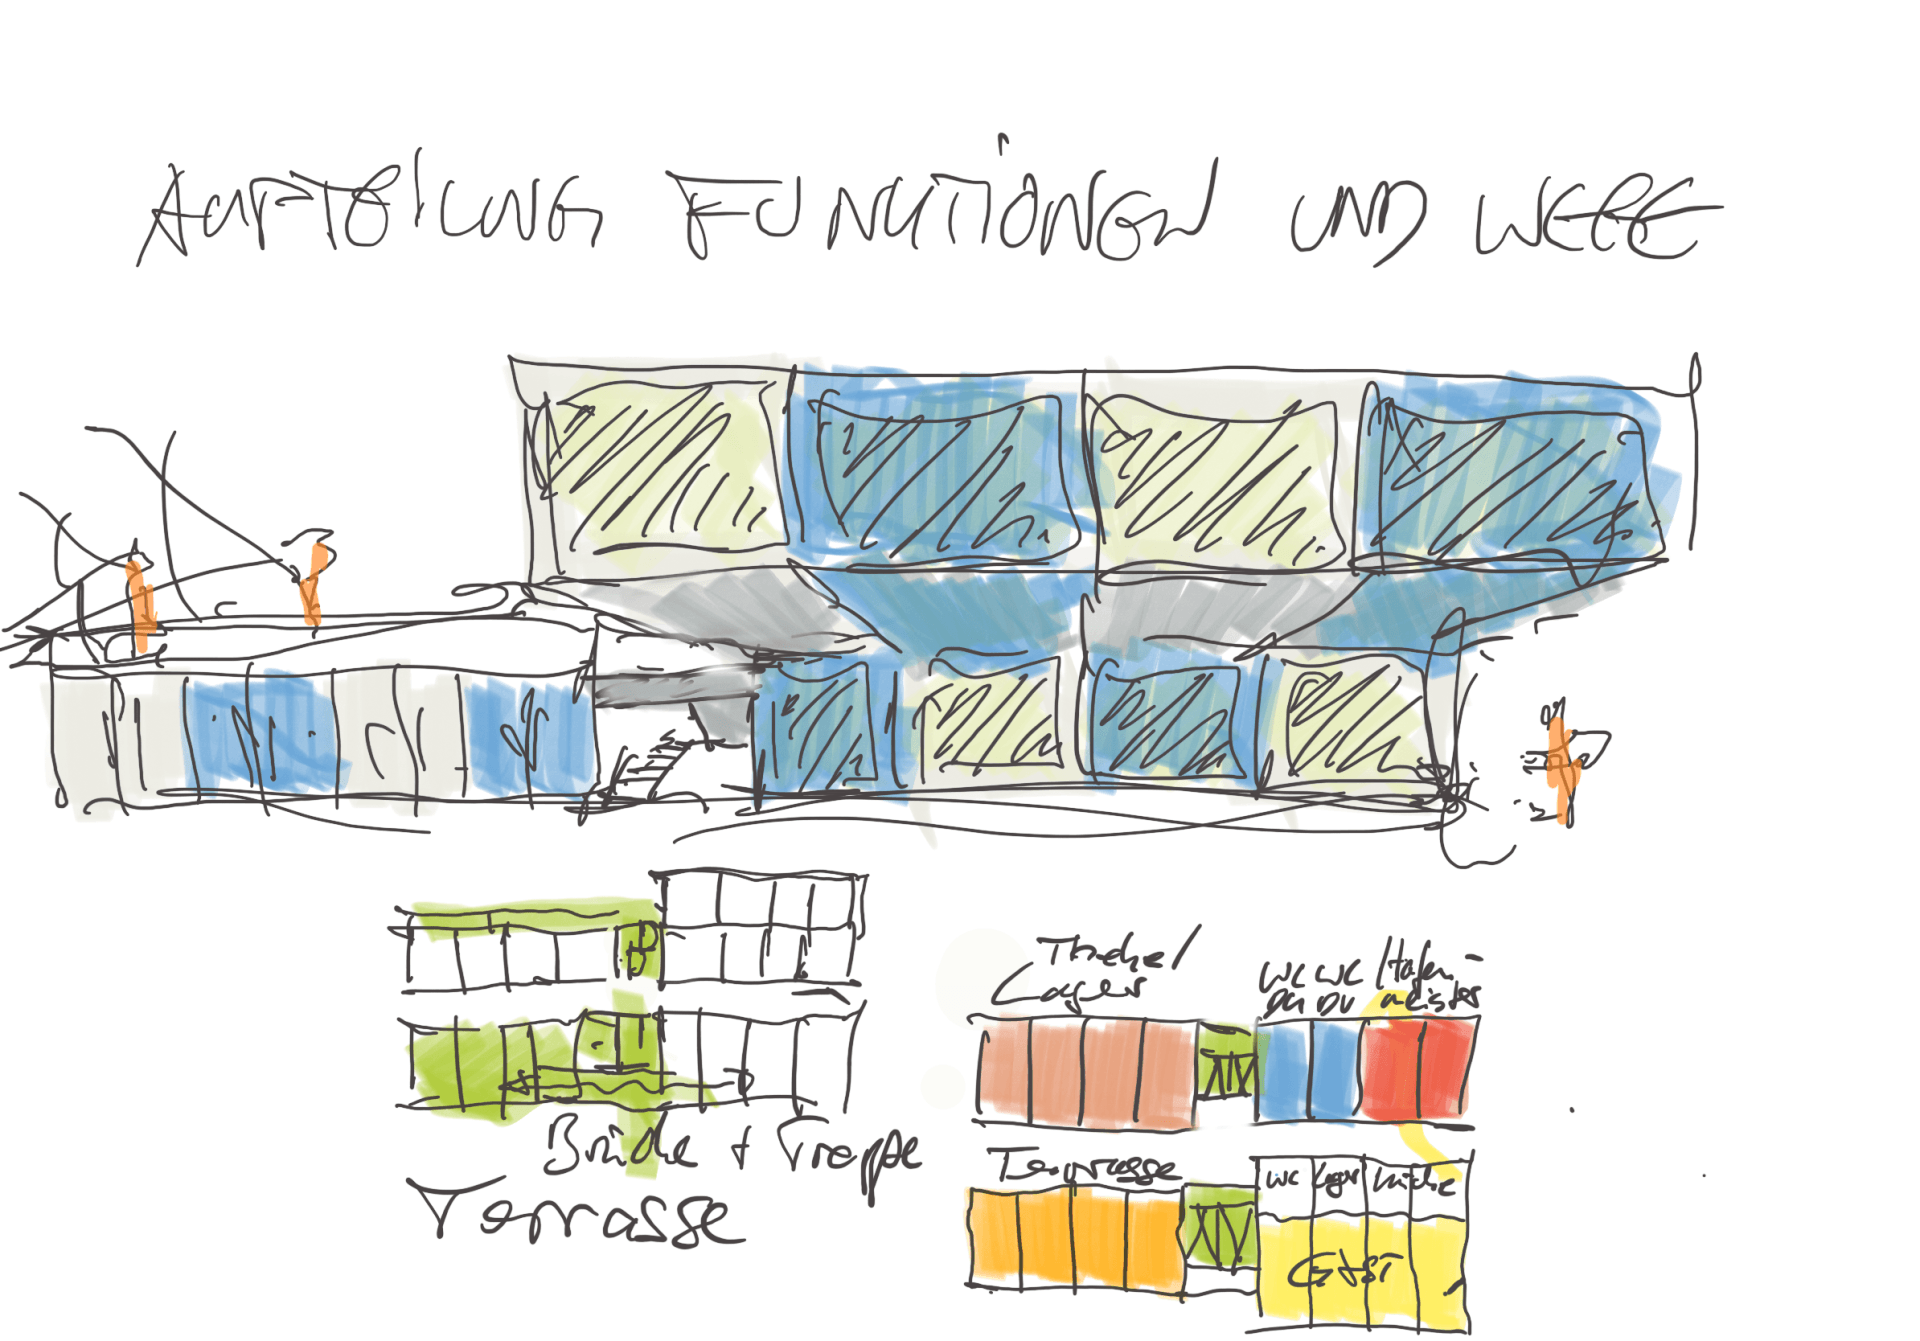 AUFTEILUNG FUNKTIONEN UND WEGE
Brücke + Treppe
Terrasse
Lager
WC WC
DU DU
Hafen-
meister
Terrasse
WC Lager Küche
GAST